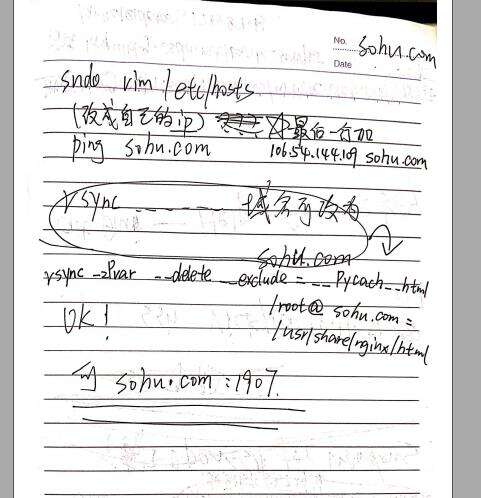 No. sohu.com
Date
sudo vim /etc/hosts
(改成自己的ip) 最后一行加
ping sohu.com 106.54.144.109 sohu.com
rsync _ _ _ _ _ _ 域名可改为
sohu.com
rsync -zPvar --delete --exclude = __Pycach__ html
/root@ sohu.com =
/usr/share/nginx/html
OK!
sohu.com : 1907.